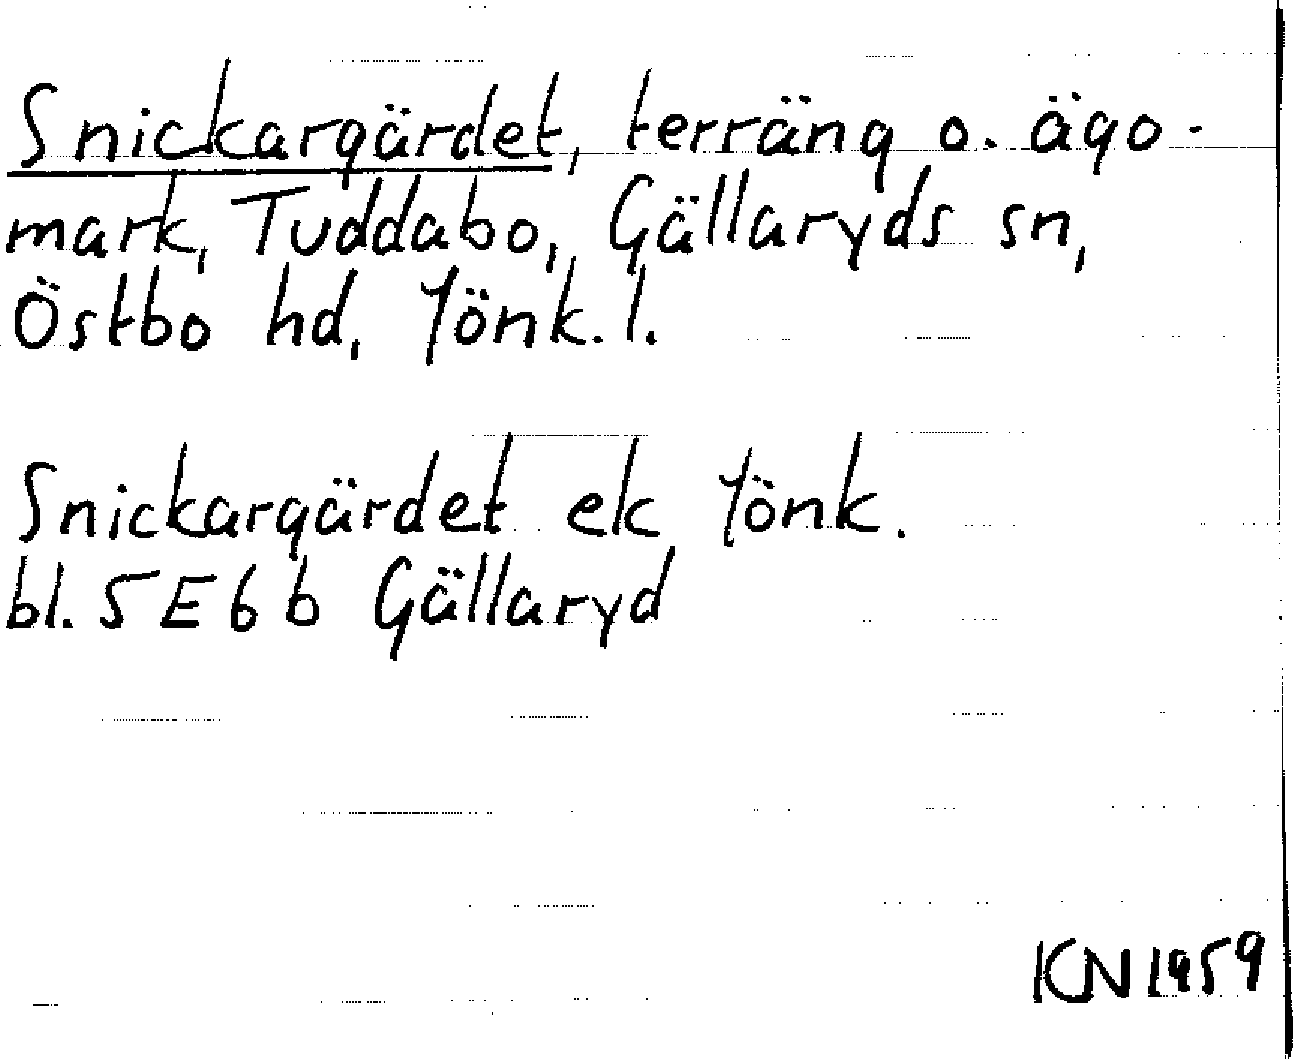 Snickargärdet, terräng o. ägo-
mark, Tuddabo, Gällaryds sn,
Östbo hd, Jönk. l.
Snickargärdet ek Jönk.
bl. 5E6b Gällaryd
KN 1959